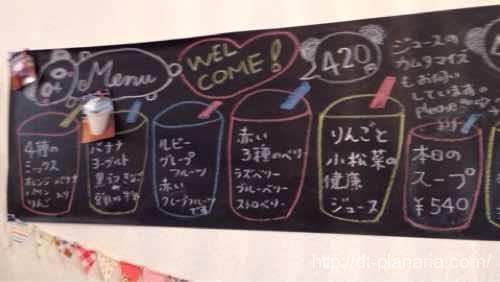 Menu
WEL
COME!
420
ジュースの
カスタマイズ
もお願い
しています
please
4種の
ミックス
りんご
バナナ
ヨーグルト
ルビー
グレープ
フルーツ
赤い
グレープフルーツ
です!
赤い
3種のベリー
ラズベリー
ブルーベリー
ストロベリー
りんごと
小松菜の
健康
ジュース
本日の
スープ
¥540
http://dt-planaria.com/